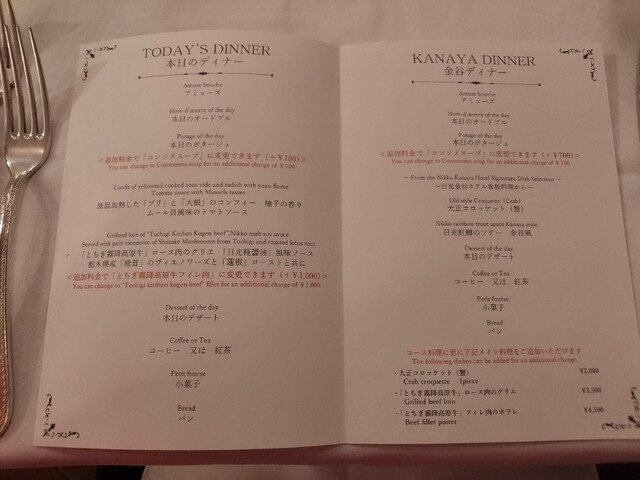 TODAY'S DINNER
本日のディナー
Amuse bouche
アミューズ
Hors-d'œuvre of the day
本日のオードブル
Potage of the day
本日のポタージュ
<追加料金で「コンソメスープ」に変更できます(+¥700)>
You can change to Consomme soup for an additional charge of ¥700
Confit of yellowtail cooked sous vide and radish with yuzu flavor
Tomato sauce with Mussels tastes
低温加熱した「ブリ」と「大根」のコンフィー 柚子の香り
ムール貝風味のトマトソース
Grilled loin of "Tochigi Kirifuri Kogen beef", Nikko malt soy sauce
Served with pain viennoise of Shiitake Mushrooms from Tochigi and roasted lotus root
・「とちぎ霧降高原牛」ロース肉のグリエ 「日光糀醤油」風味ソース
栃木県産「椎茸」のヴィエノワーズと「蓮根」ローストと共に
<追加料金で「とちぎ霧降高原牛フィレ肉」に変更できます(+¥1,000)>
You can change to "Tochigi kirifuri kogen beef" fillet for an additional charge of ¥1,000
Dessert of the day
本日のデザート
Coffee or Tea
コーヒー 又は 紅茶
Petit fourse
小菓子
Bread
パン
KANAYA DINNER
金谷ディナー
Amuse bouche
アミューズ
Hors-d'œuvre of the day
本日のオードブル
Potage of the day
本日のポタージュ
<追加料金で「コンソメスープ」に変更できます(+¥700)>
You can change to Consomme soup for an additional charge of ¥700
~ From the Nikko Kanaya Hotel Signature Dish Selection ~
~日光金谷ホテル看板料理から~
Old style Croquette (Crab)
大正コロッケット(蟹)
Nikko rainbow trout sauce Kanaya style
日光虹鱒のソテー 金谷風
Dessert of the day
本日のデザート
Coffee or Tea
コーヒー 又は 紅茶
Petit fourse
小菓子
Bread
パン
コース料理に更に下記メイン料理をご追加いただけます
The following dishes can be added for an additional charge.
・大正コロッケット(蟹) ¥2,000
Crab croquette 1piece
・「とちぎ霧降高原牛」ロース肉のグリエ ¥3,500
Grilled beef loin
・「とちぎ霧降高原牛」フィレ肉のポワレ ¥4,500
Beef fillet poiret